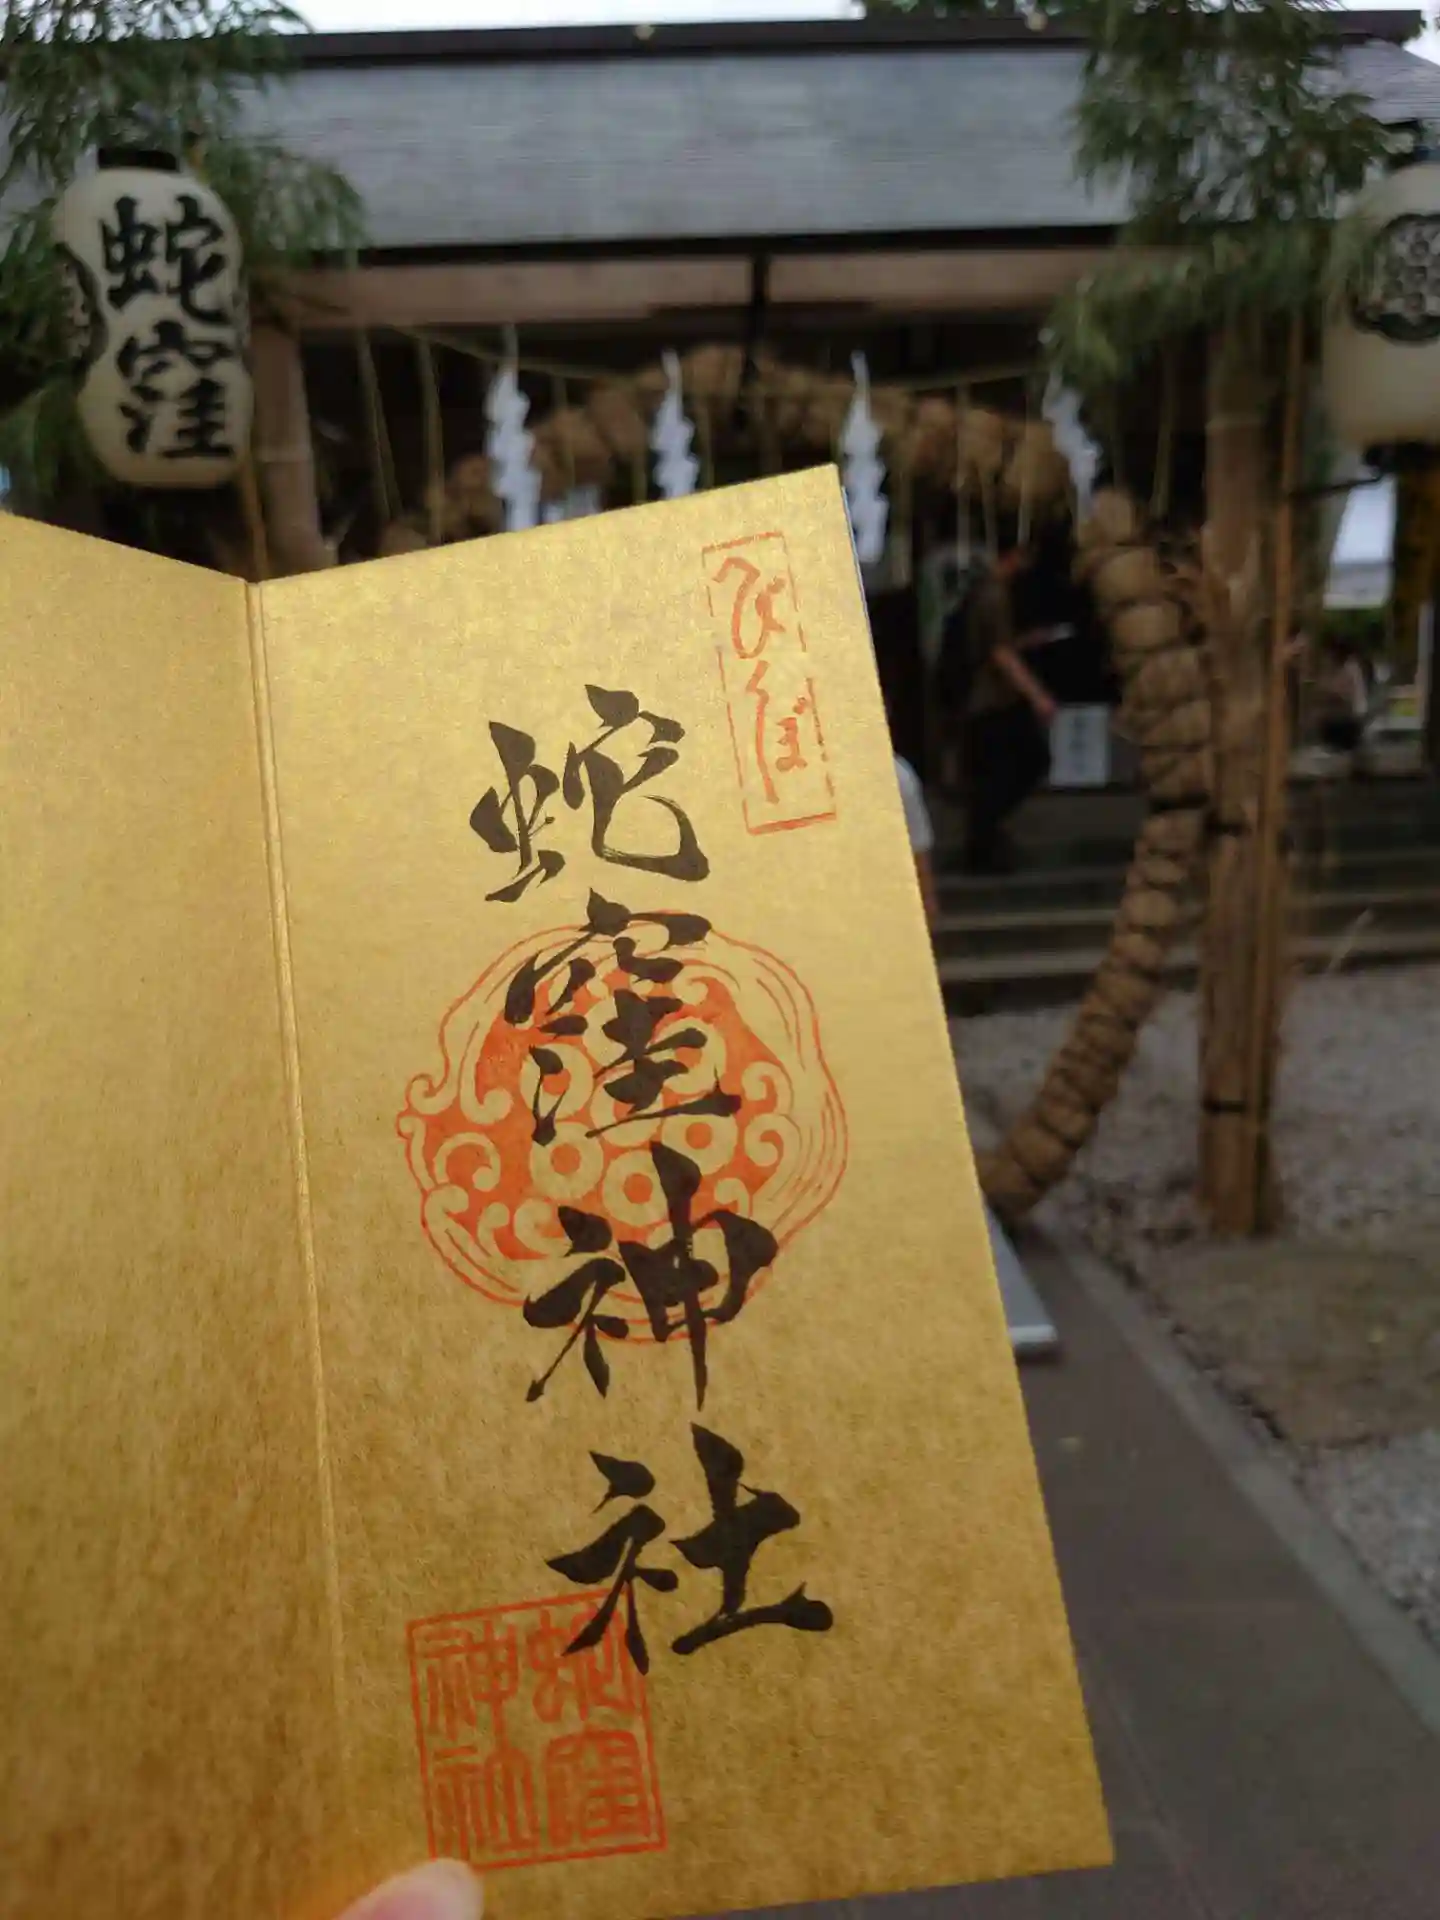 蛇窪
へびくぼ
蛇窪神社
蛇窪
神社